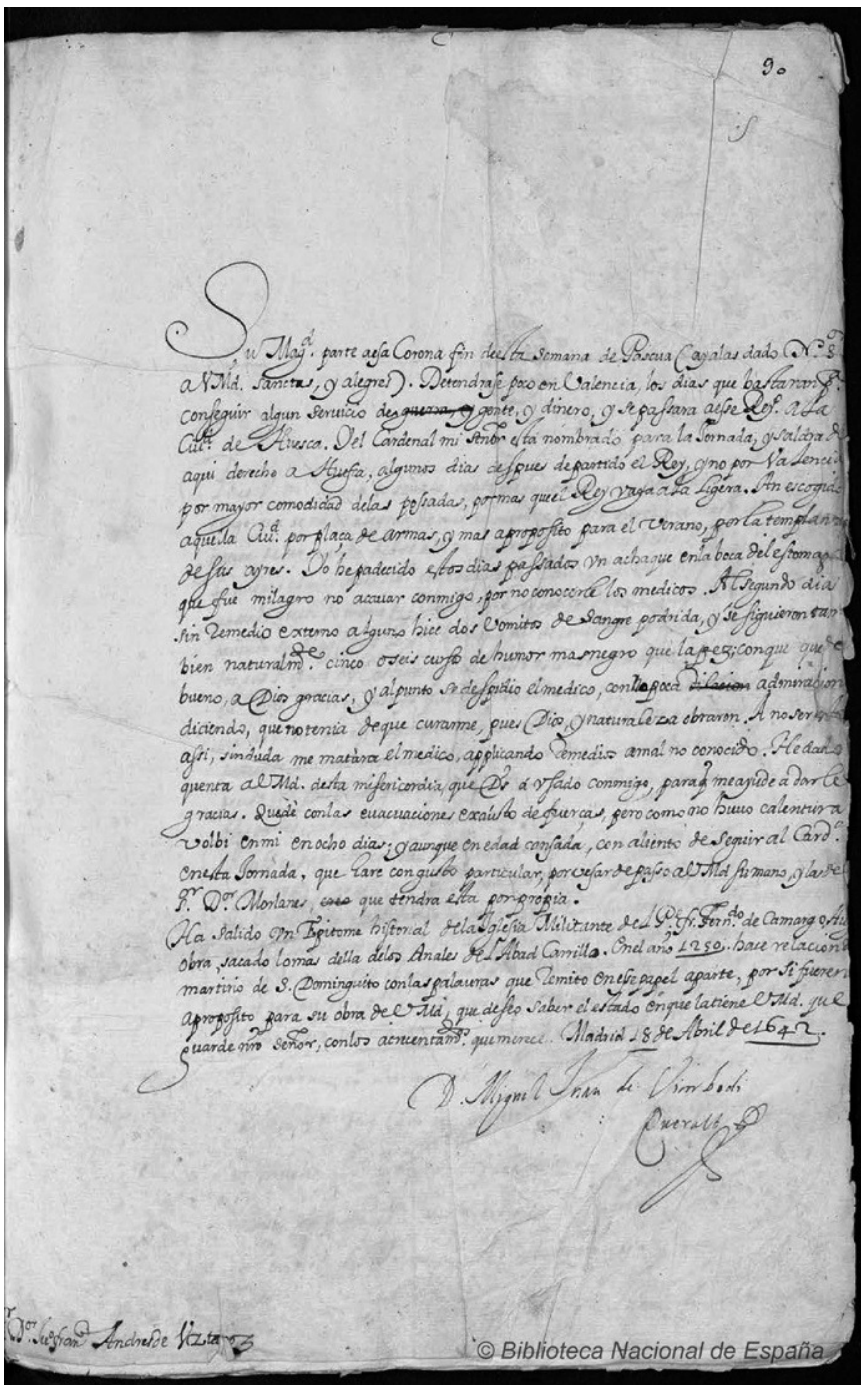 90
Su Magd. parte aessa Corona fin de esta semana de Pascua (ayalas dado N.º S.r
a VMd. sanctas, y alegres). Detendrase poco en Valencia, los dias que bastaran pa.
conseguir algun servicio de guerra, y gente, y dinero, y se passara aesse Rey.º a la
Ciud. de Huesca. Del Cardenal mi señor està nombrado para la Jornada, y saldra de
aqui derecho a Huesca, algunos dias despues de partido el Rey, y no por Valencia
por mayor comodidad delas possadas, por mas que el Rey vaya a la ligera. An escogido
aquella Ciud. por plaça de armas, y mas aproposito para el verano, por la templança
de sus ayres. Yo he padecido estos dias passados vn achaque en la boca del estomago
que fue milagro no acavar conmigo, por no conocerle los medicos. Al segundo dia
sin remedio externo alguno hice dos vomitos de sangre podrida, y se siguieron tam
bien naturalmte. cinco o seis cursos de humor mas negro que la pez; con que quedè
bueno, a Dios gracias, y al punto se despidio el medico, con no poca dilacion admiracion
diciendo, que no tenia de que curarme, pues Dios, y naturaleza obraron. A no ser
assi, sin duda me matàra el medico, applicando remedios a mal no conocido. He dado
quenta a VMd. desta misericordia, que Ds. à vsado conmigo, para q me ayude a darle
gracias. Quedè con las evacuaciones exàusto de fuerças, pero como no huvo calentura
volbi en mi en ocho dias; y aunque en edad cansada, con aliento de seguir al Card.l
en esta Jornada, que hare con gusto particular, por vesar de passo a VMd su mano, y las del
S.r D.or Morlanes, que tendra esta por propia.
Ha salido vn Epitome historial de la Iglesia Militante del P.e fr. Fern.do de Camargo,
obra, sacado lo mas della delos Anales del Abad Carrillo. En el año 1250. hace relacion
martirio de S. Dominguito con las palavras que remito en esse papel aparte, por si fueren
aproposito para su obra de VMd, que deseo saber el estado en que la tiene VMd. que
guarde nro señor, con los acrecentamtos. que merece. Madrid 18 de Abril de 1642.
D. Miguel Juan de Vimbodi
Queralt
D.or Ju.o fran.co Andres de Uztarroz
© Biblioteca Nacional de España